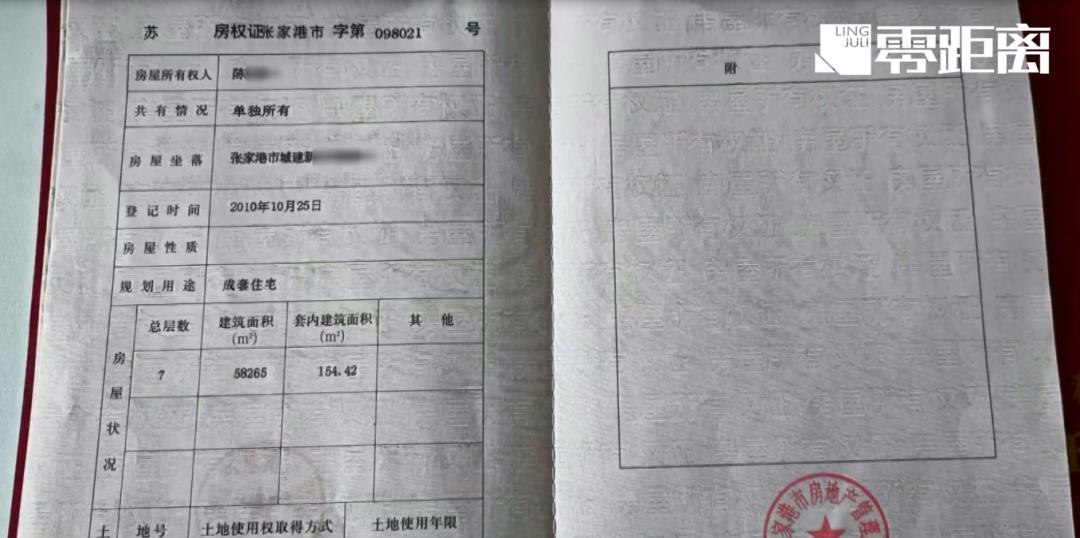 苏 房权证张家港市 字第 098021 号
房屋所有权人 陈
共有情况 单独所有
房屋坐落 张家港市城建新
登记时间 2010年10月25日
房屋性质
规划用途 成套住宅
房屋状况
总层数 建筑面积(m²) 套内建筑面积(m²) 其他
7 58265 154.42
土 地号 土地使用权取得方式 土地使用年限
附
LING JULI 零距离
家港市房地产管理